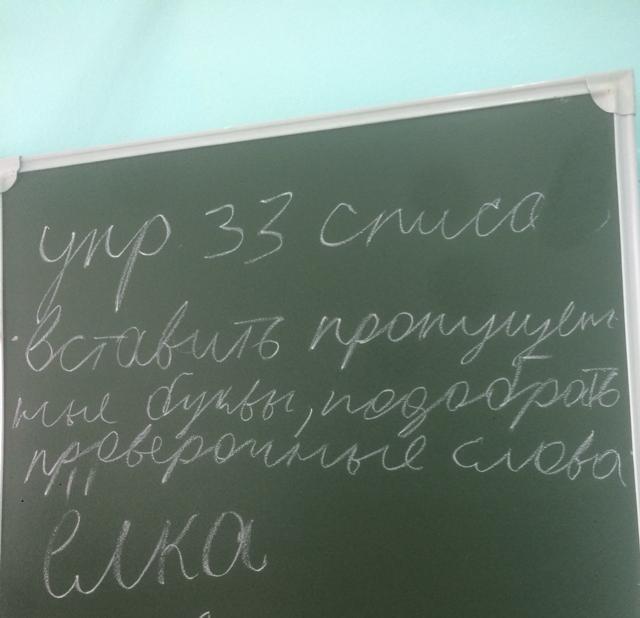 упр 33 списа
вставить пропущен
ные буквы, подобрать
проверочные слова
ёлка